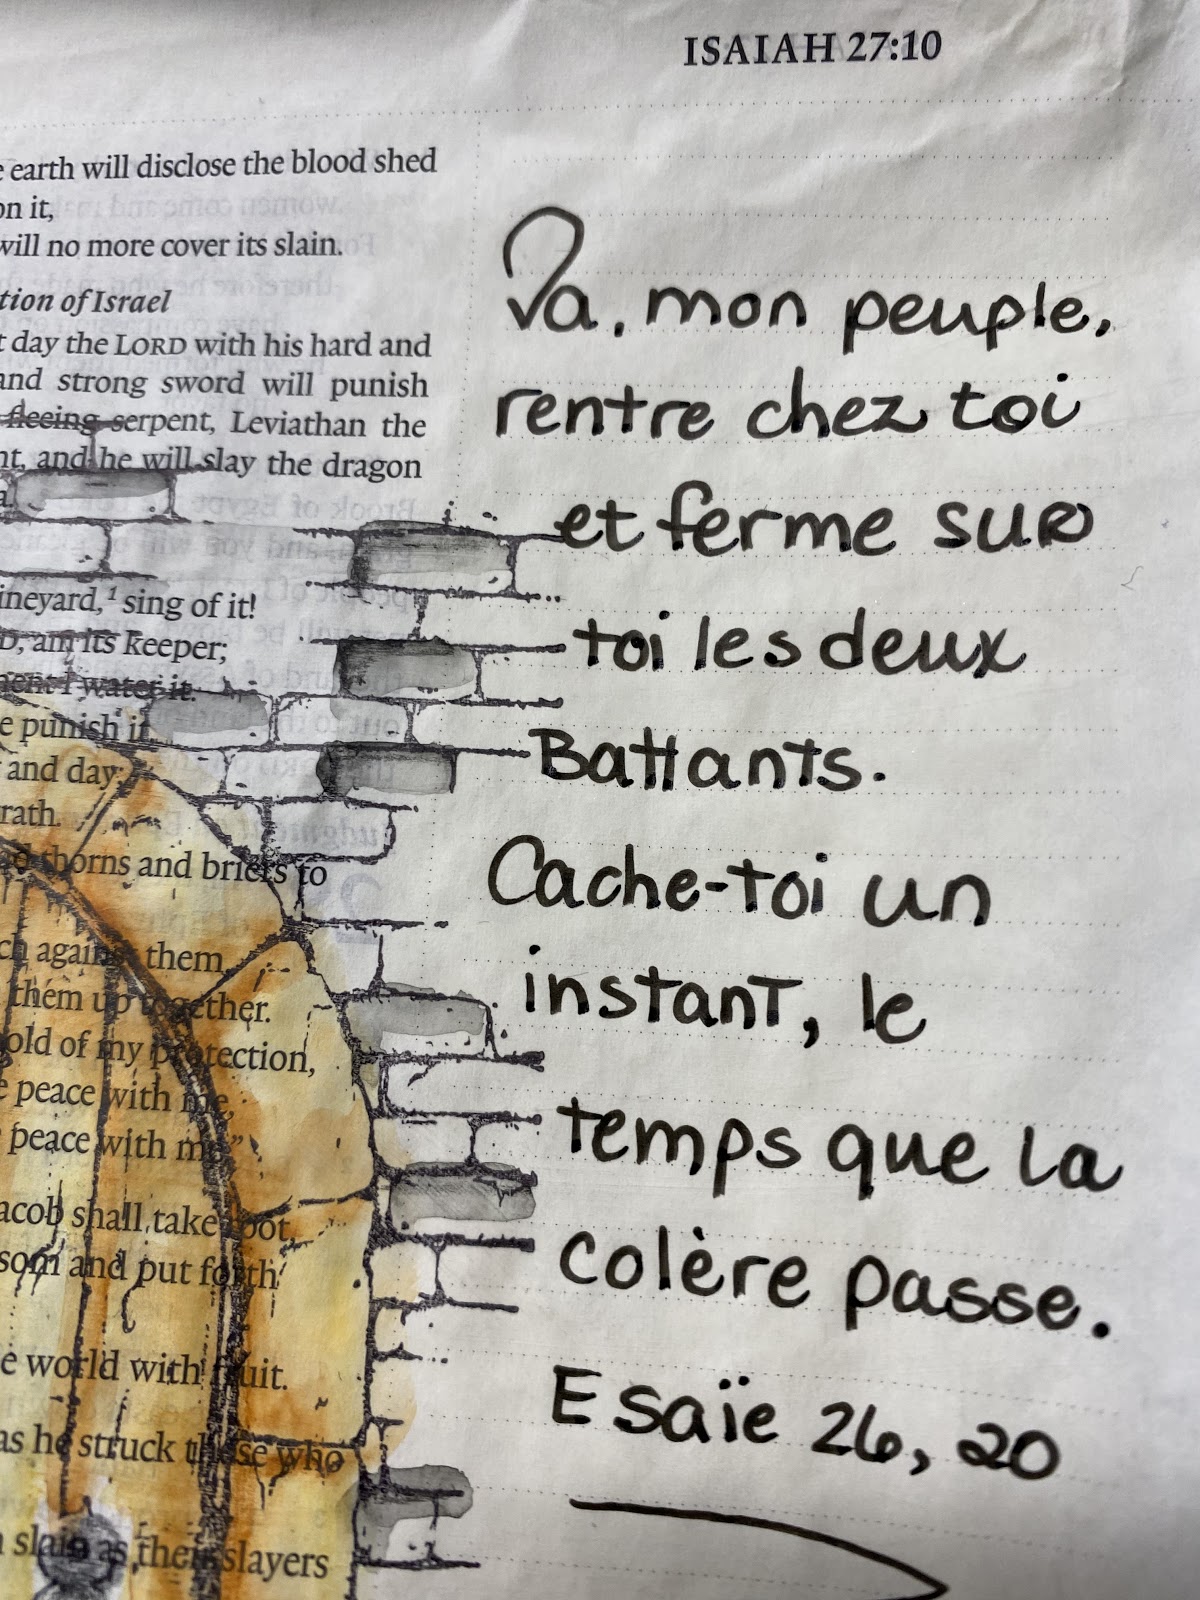 ISAIAH 27:10
earth will disclose the blood shed
on it,
will no more cover its slain.
tion of Israel
day the LORD with his hard and
and strong sword will punish
fleeing serpent, Leviathan the
and he will slay the dragon
ineyard,¹ sing of it!
am its keeper;
I water it.
punish it
and day;
rath.
thorns and briers to
against them,
them up together.
old of my protection,
peace with me,
peace with me."
acob shall take root,
som and put forth
world with fruit.
as he struck those who
slain as their slayers
Va, mon peuple,
rentre chez toi
et ferme sur
toi les deux
Battants.
Cache-toi un
instant, le
temps que la
colère passe.
Esaïe 26, 20